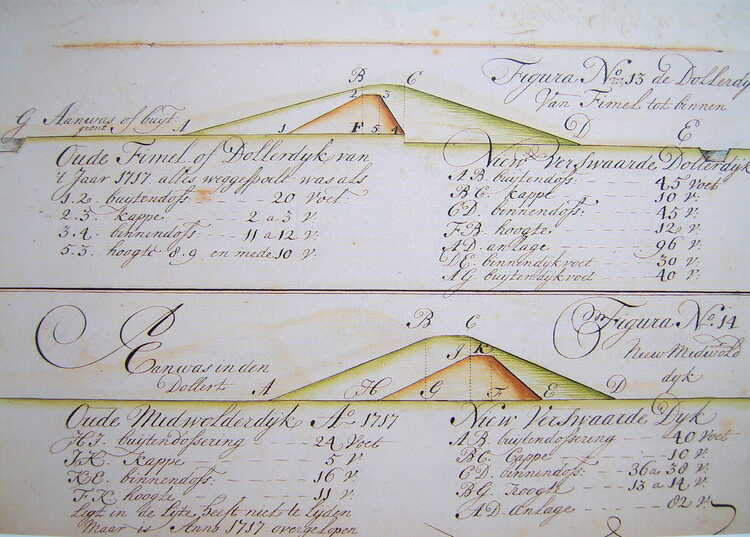 Figura No. 13 de Dollerdy
Van Fimel tot binnen
B C
2 3
G Aanwas of buyt
gront A 1 F 5 4 D E
Oude Fimel of Dollerdyk van
't Jaar 1717 alles weggespoelt was als
1.2 buytendoss: 20 Voet
2.3. kappe 2 a 3 V.
3.4. binnendoss: 11 a 12 V.
5.3. hoogte 8.9. en mede 10 V.
Niew Verswaarde Dollerdyk
A B. buytendoss: 45 Voet
B C. kappe 10 V.
C D. binnendoss: 45 V.
F B. hoogte 12 V.
A D. anlage 96 V.
D E. binnendyk voet 30 V.
A G buytendyk voet 40 V.
Figura No. 14
Nieuw Midwold
dyk
A
Eanwas in den
Dollert
B C
I K
A H G F E D
Oude Midwolderdyk Ao 1717
H I. buytendossering 24 Voet
I K. kappe 5 V.
K E. binnendoss: 16 V.
F K. hoogte 11 V.
Ligt in de Lijte heeft niet te lyden
Maar is Anno 1717 overgelopen
Niew Verswaarde Dyk
A B. buytendossering 40 Voet
B C. Cappe 10 V.
C D. binnendoss: 36 a 38 V.
B G. Hoogte 13 a 14 V.
A D. Anlage 82 V.